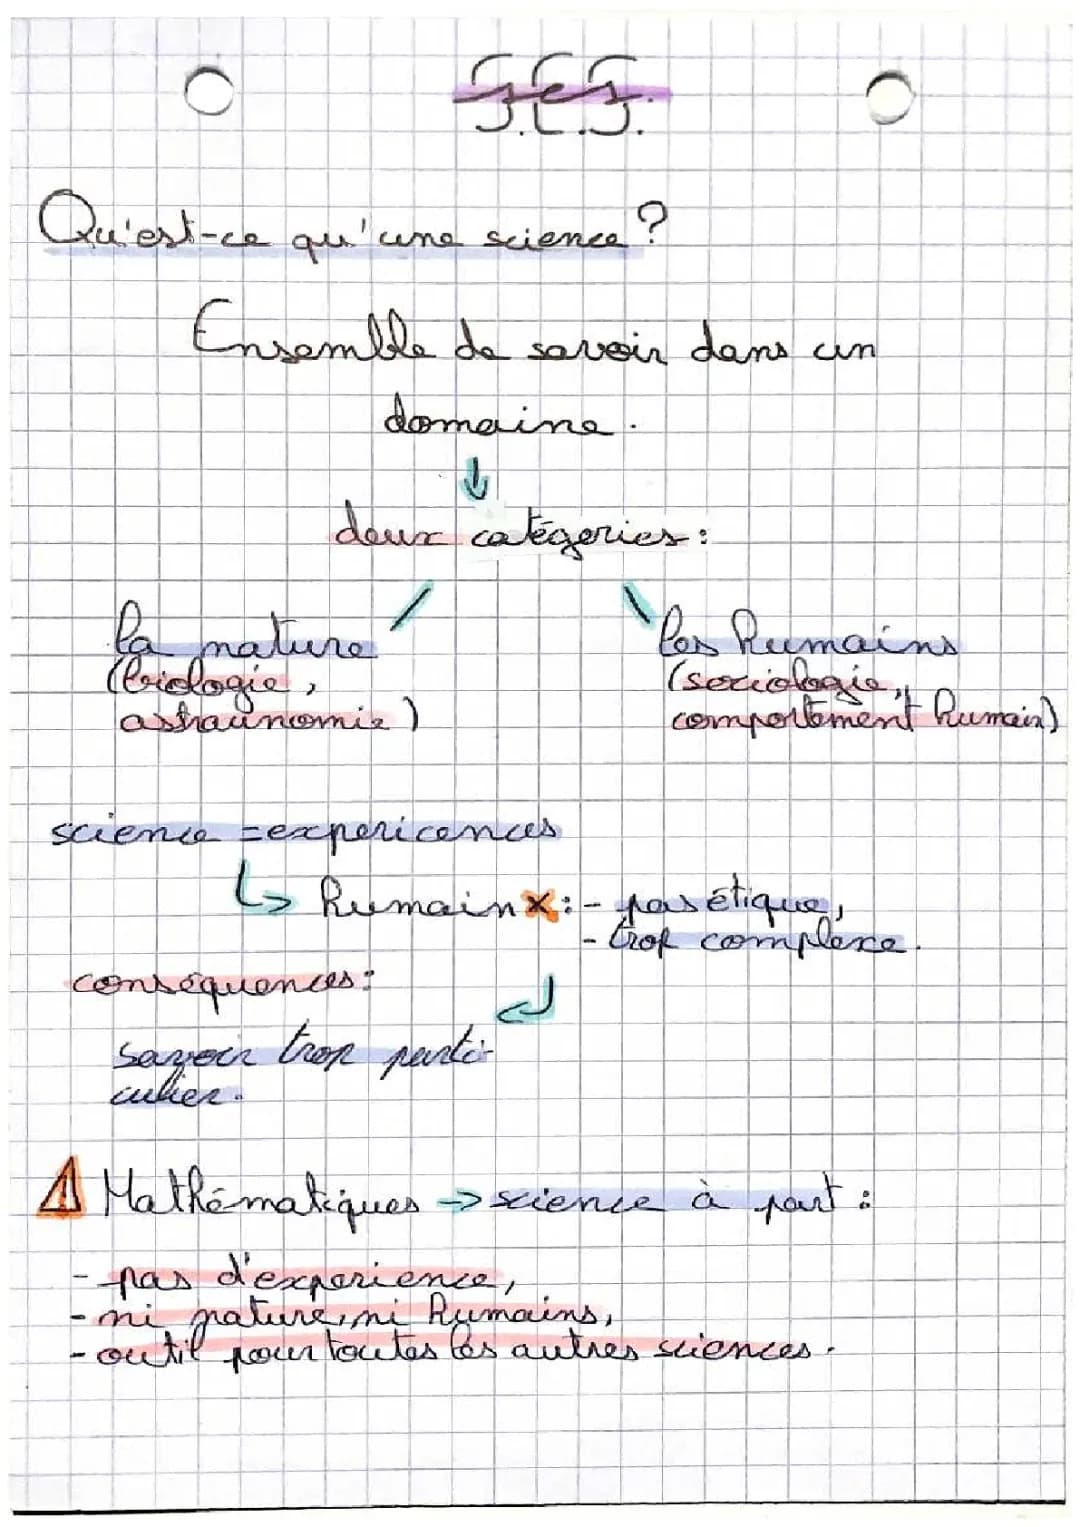 S.E.S.
Qu'est-ce qu'une science ?
Ensemble de savoir dans un
domaine.
deux catégories :
la nature
(biologie,
astraunomie)
les humains
(sociologie,
comportement humain)
science = expericences
humain x : - pas étique,
- trop complexe.
conséquences :
savoir trop parti-
culier.
Mathématiques → science à part :
- pas d'experience,
- ni nature, ni humains,
- outil pour toutes les autres sciences.